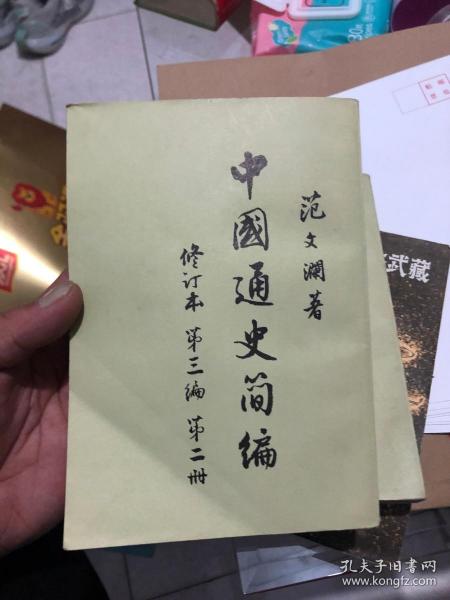 范文瀾著
中國通史简编
修订本 第三编 第二册
藏武
孔夫子旧书网
www.kongfz.com